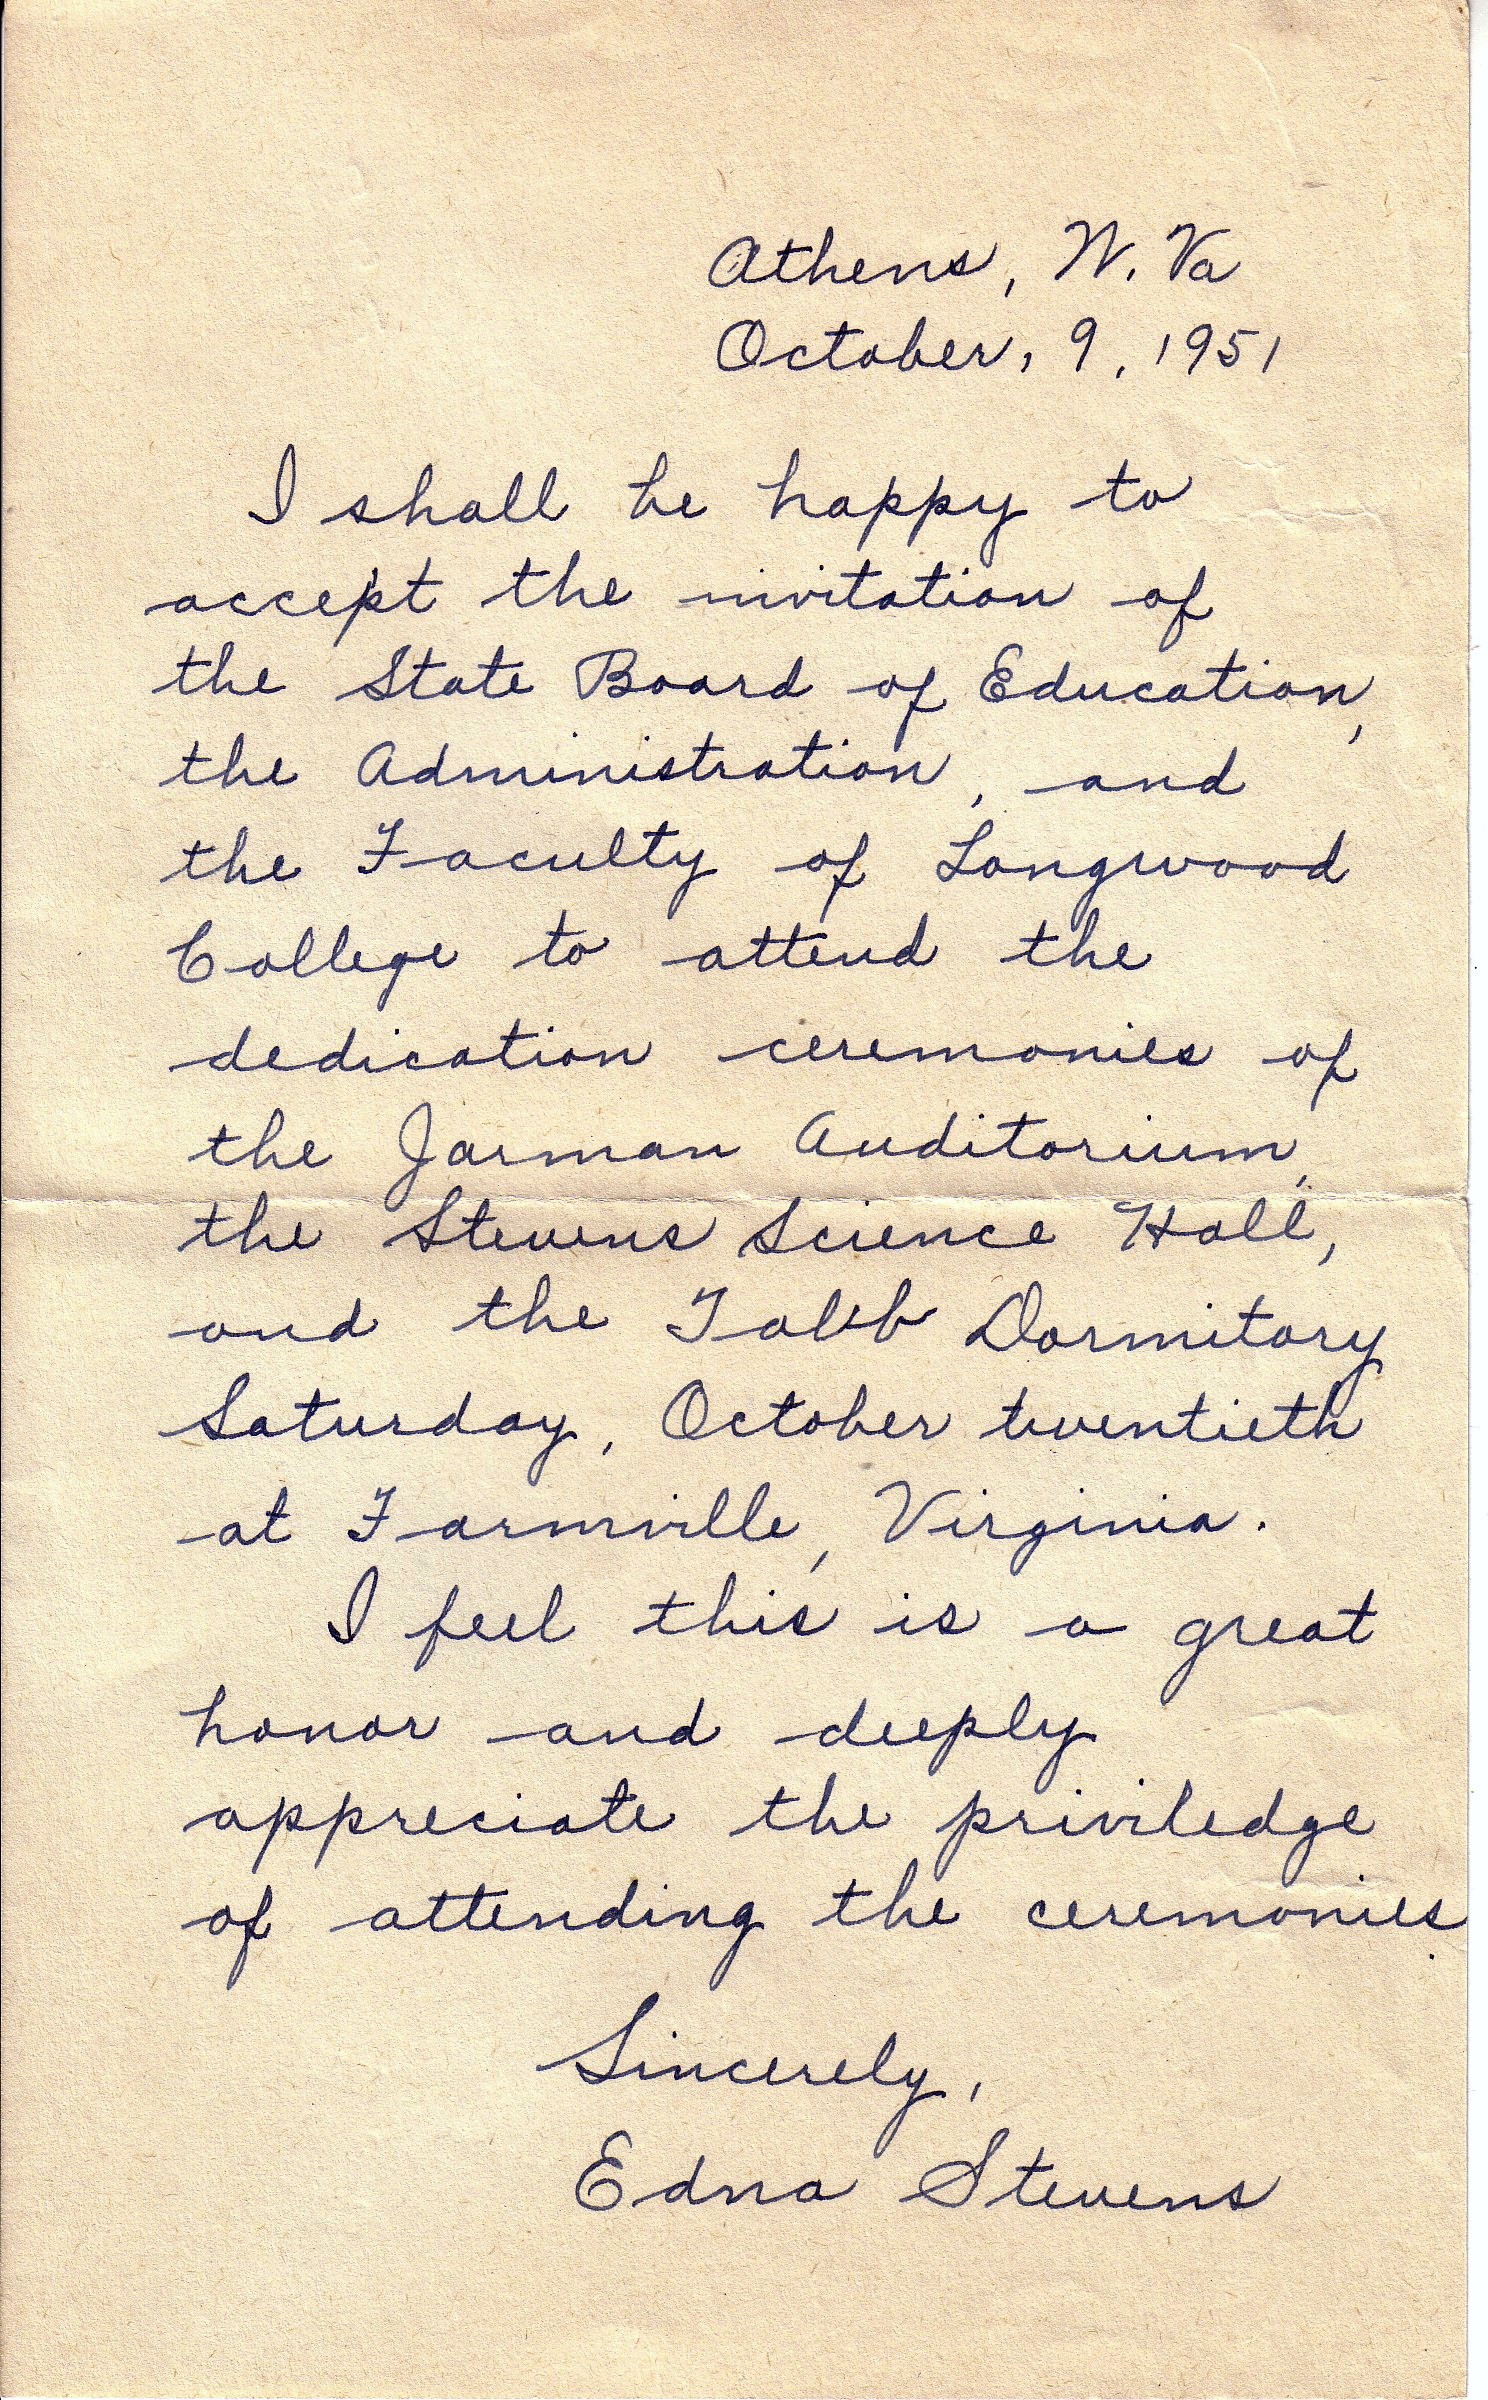 Athens, W. Va
October, 9, 1951
I shall be happy to
accept the invitation of
the State Board of Education,
the Administration, and
the Faculty of Longwood
College to attend the
dedication ceremonies of
the Jarman Auditorium,
the Stevens Science Hall,
and the Tabb Dormitory
Saturday, October twentieth
at Farmville, Virginia.
I feel this is a great
honor and deeply
appreciate the priviledge
of attending the ceremonies.
Sincerely,
Edna Stevens